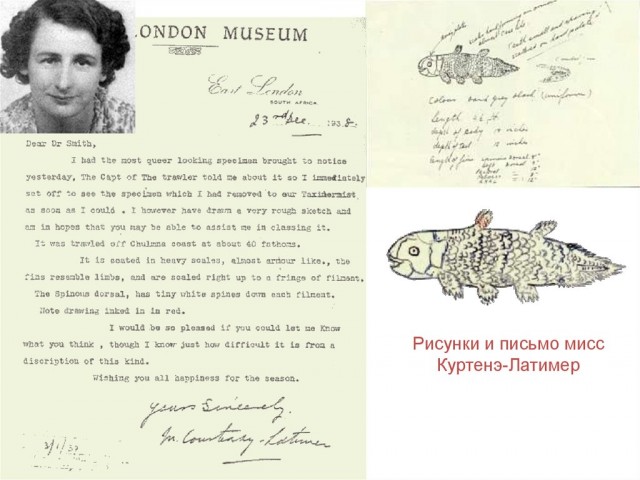 LONDON MUSEUM
East London
SOUTH AFRICA.
23rd Dec. 1938.
Dear Dr Smith,
I had the most queer looking specimen brought to notice
yesterday, The Capt of The trawler told me about it so I immediately
set off to see the specimen which I had removed to our Taxidermist
as soon as I could . I however have drawn a very rough sketch and
am in hopes that you may be able to assist me in classing it.
It was trawled off Chulmna coast at about 40 fathoms.
It is coated in heavy scales, almost armour like., the
fins resemble limbs, and are scaled right up to a fringe of filment.
The Spinous dorsal, has tiny white spines down each filment.
Note drawing inked in in red.
I would be so pleased if you could let me Know
what you think , though I know just how difficult it is from a
discription of this kind.
Wishing you all happiness for the season.
Yours Sincerely.
M. Courtenay-Latimer
3/1/39
Colour hard grey
length
depth of body inches
12 inches
length of fins
Рисунки и письмо мисс
Куртенэ-Латимер